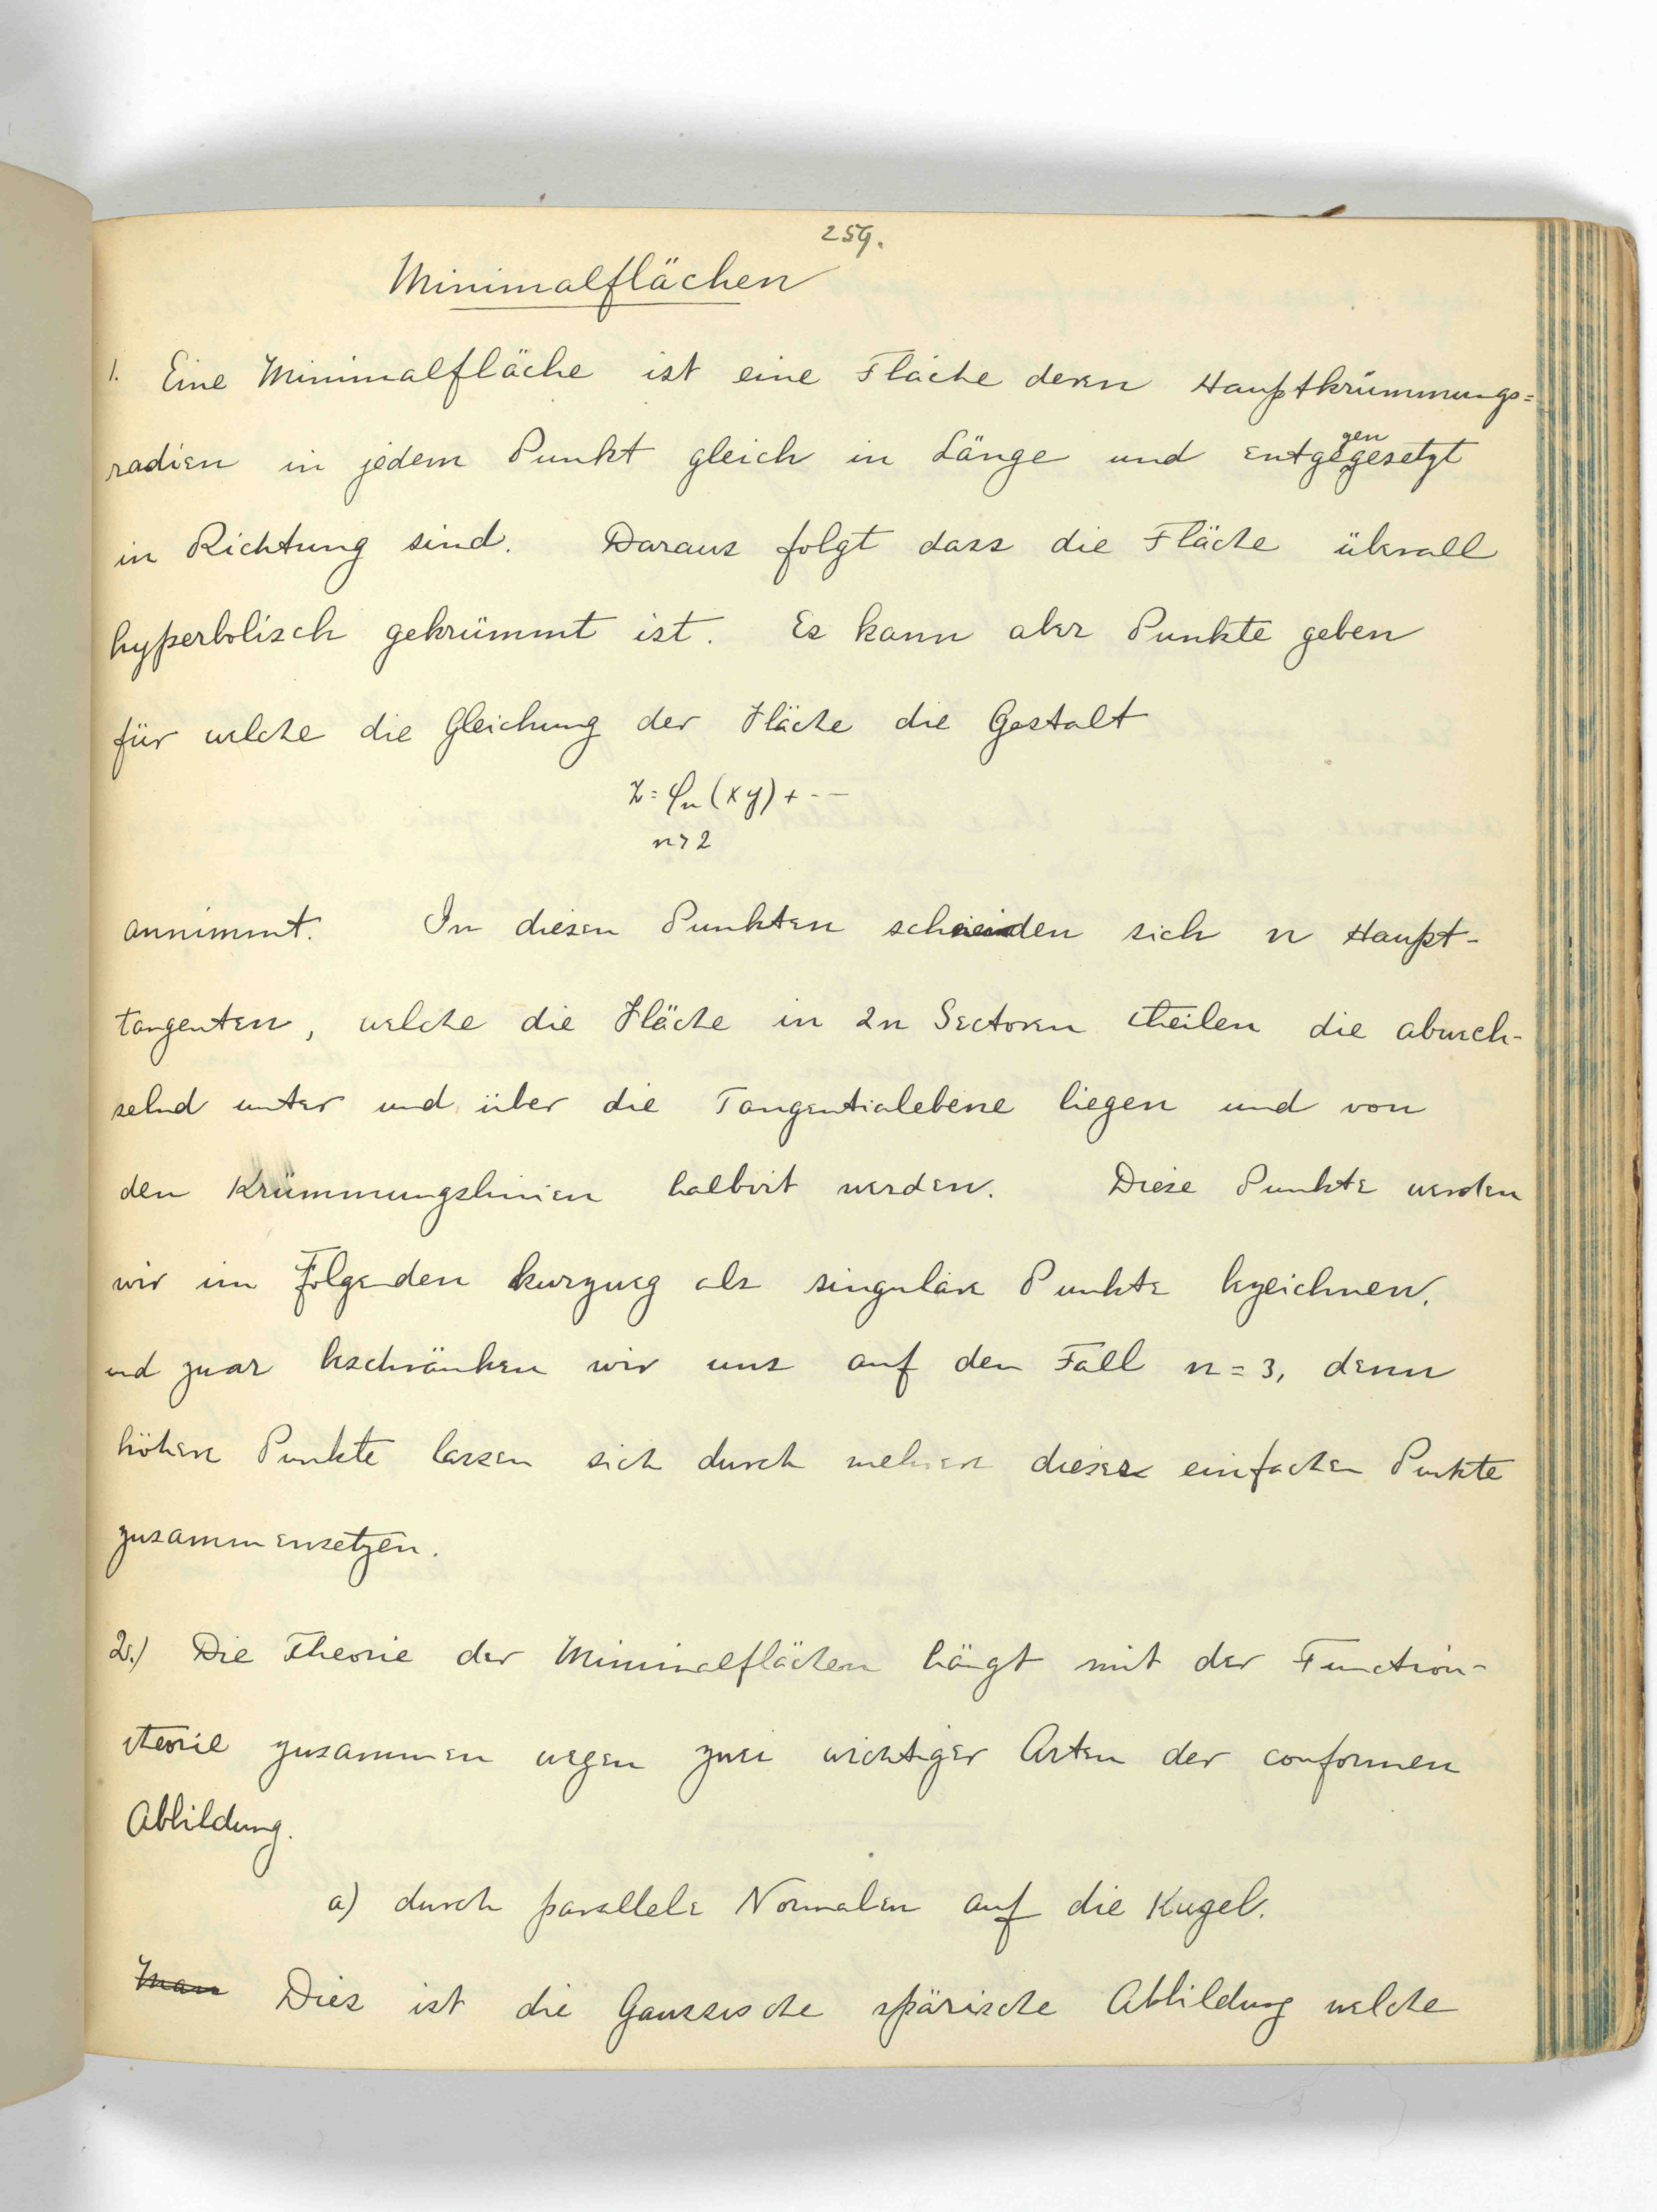 259.
Minimalflächen
1. Eine Minimalfläche ist eine Fläche deren Hauptkrümmungs=
radien in jedem Punkt gleich in Länge und entgegengesetzt
in Richtung sind. Daraus folgt dass die Fläche überall
hyperbolisch gekrümmt ist. Es kann aber Punkte geben
für welche die Gleichung der Fläche die Gestalt
z = φn (x y) + - -
n > 2
annimmt. In diesen Punkten schneiden sich n Haupt-
tangenten, welche die Fläche in 2n Sectoren theilen die abwech-
selnd unter und über die Tangentialebene liegen und von
den Krümmungslinien halbirt werden. Diese Punkte werden
wir im Folgenden kurzweg als singuläre Punkte bezeichnen.
und zwar beschränken wir uns auf den Fall n = 3, denn
höhere Punkte lassen sich durch mehrere dieser einfachen Punkte
zusammensetzen.
2.) Die Theorie der Minimalflächen hängt mit der Function-
theorie zusammen wegen zwei wichtiger Arten der conformen
Abbildung.
a) durch parallele Normalen auf die Kugel.
Man Dies ist die Gaussische spärische Abbildung welche